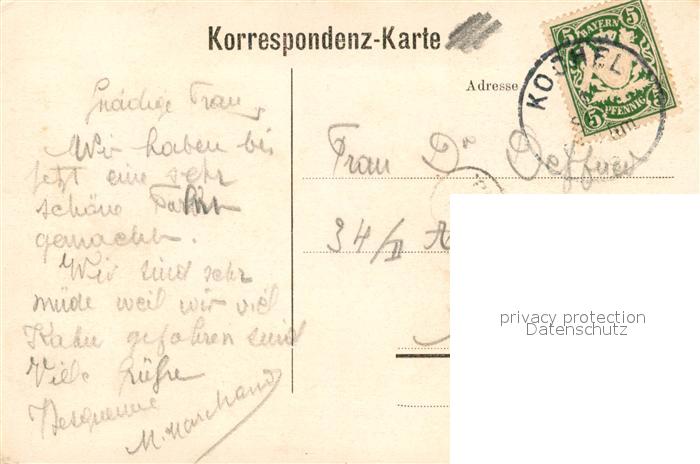 Korrespondenz-Karte
Adresse
BAYERN
5 5
5 PFENNIG 5
KOCHEL
Gnädige Frau,
Wir haben bis
jetzt eine sehr
schöne Fahrt
gemacht.
Wir sind sehr
müde weil wir viel
Kahn gefahren sind
Viele Grüße
M. Marchand
Frau Dr Oeffner
34/II A
privacy protection
Datenschutz